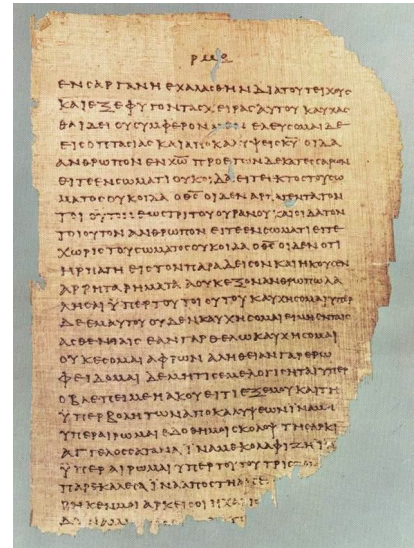 ΕΝ ΣΑΡΓΑΝΗ ΕΧΑΛΑΣΘΗΝ ΔΙΑ ΤΟΥ ΤΕΙΧΟΥΣ
ΚΑΙ ΕΞΕΦΥΓΟΝ ΤΑΣ ΧΕΙΡΑΣ ΑΥΤΟΥ ΚΑΥΧΑΣ
ΘΑΙ ΔΕΙ ΟΥ ΣΥΜΦΕΡΟΝ ΕΛΕΥΣΟΜΑΙ ΔΕ
ΕΙΣ ΟΠΤΑΣΙΑΣ ΚΑΙ ΑΠΟΚΑΛΥΨΕΙΣ Κ̅Υ̅ ΟΙΔΑ
ΑΝΘΡΩΠΟΝ ΕΝ Χ̅Ω̅ ΠΡΟ ΕΤΩΝ ΔΕΚΑΤΕΣΣΑΡΩΝ
ΕΙΤΕ ΕΝ ΣΩΜΑΤΙ ΟΥΚ ΟΙΔΑ ΕΙΤΕ ΕΚΤΟΣ ΤΟΥ ΣΩ
ΜΑΤΟΣ ΟΥΚ ΟΙΔΑ Ο Θ̅Σ̅ ΟΙΔΕΝ ΑΡΠΑΓΕΝΤΑ ΤΟΝ
ΤΟΙΟΥΤΟΝ ΕΩΣ ΤΡΙΤΟΥ ΟΥΡΑΝΟΥ ΚΑΙ ΟΙΔΑ ΤΟΝ
ΤΟΙΟΥΤΟΝ ΑΝΘΡΩΠΟΝ ΕΙΤΕ ΕΝ ΣΩΜΑΤΙ ΕΙΤΕ
ΧΩΡΙΣ ΤΟΥ ΣΩΜΑΤΟΣ ΟΥΚ ΟΙΔΑ Ο Θ̅Σ̅ ΟΙΔΕΝ ΟΤΙ
ΗΡΠΑΓΗ ΕΙΣ ΤΟΝ ΠΑΡΑΔΕΙΣΟΝ ΚΑΙ ΗΚΟΥΣΕΝ
ΑΡΡΗΤΑ ΡΗΜΑΤΑ Α ΟΥΚ ΕΞΟΝ ΑΝΘΡΩΠΩ ΛΑ
ΛΗΣΑΙ ΫΠΕΡ ΤΟΥ ΤΟΙΟΥΤΟΥ ΚΑΥΧΗΣΟΜΑΙ ΫΠΕΡ
ΔΕ ΕΜΑΥΤΟΥ ΟΥΔΕΝ ΚΑΥΧΗΣΟΜΑΙ ΕΙ ΜΗ ΕΝ ΤΑΙΣ
ΑΣΘΕΝΙΑΙΣ ΕΑΝ ΓΑΡ ΘΕΛΩ ΚΑΥΧΗΣΟΜΑΙ
ΟΥΚ ΕΣΟΜΑΙ ΑΦΡΩΝ ΑΛΗΘΕΙΑΝ ΓΑΡ ΕΡΩ
ΦΕΙΔΟΜΑΙ ΔΕ ΜΗ ΤΙΣ ΕΜΕ ΛΟΓΙΣΗΤΑΙ ΥΠΕΡ
Ο ΒΛΕΠΕΙ ΜΕ Η ΑΚΟΥΕΙ ΤΙ ΕΞ ΕΜΟΥ ΚΑΙ ΤΗ
ΫΠΕΡΒΟΛΗ ΤΩΝ ΑΠΟΚΑΛΥΨΕΩΝ ΪΝΑ ΜΗ
ΥΠΕΡΑΙΡΩΜΑΙ ΕΔΟΘΗ ΜΟΙ ΣΚΟΛΟΨ ΤΗ ΣΑΡΚΙ
ΑΓΓΕΛΟΣ ΣΑΤΑΝΑ ΪΝΑ ΜΕ ΚΟΛΑΦΙΖΗ ΪΝΑ
ΫΠΕΡΑΙΡΩΜΑΙ ΫΠΕΡ ΤΟΥΤΟΥ ΤΡΙΣ
ΠΑΡΕΚΑΛΕΣΑ ΪΝΑ ΑΠΟΣΤΗ
ΑΡΚΕΙ ΣΟΙ Η